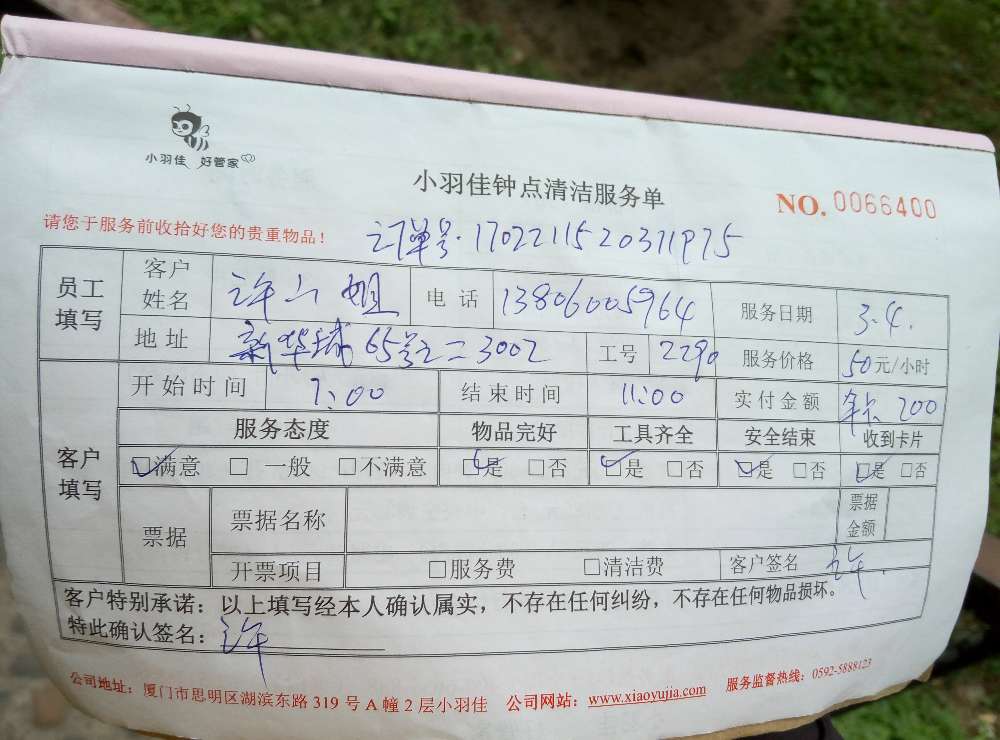 小羽佳 好管家
小羽佳钟点清洁服务单
NO. 0066400
请您于服务前收拾好您的贵重物品！
订单号·1702211520311975
员工填写 客户姓名 许小姐 电话 13806005964 服务日期 3.4.
地址 新华城65号之二3002 工号 2290 服务价格 50元/小时
客户填写 开始时间 7:00 结束时间 11:00 实付金额 年卡 200
服务态度 物品完好 工具齐全 安全结束 收到卡片
☑满意 □一般 □不满意 ☑是 □否 ☑是 □否 ☑是 □否 ☑是 □否
票据 票据名称 票据金额
开票项目 □服务费 □清洁费 客户签名 许.
客户特别承诺：以上填写经本人确认属实，不存在任何纠纷，不存在任何物品损坏。
特此确认签名：许
公司地址：厦门市思明区湖滨东路319号A幢2层小羽佳 公司网站：www.xiaoyujia.com 服务监督热线：0592-5888123